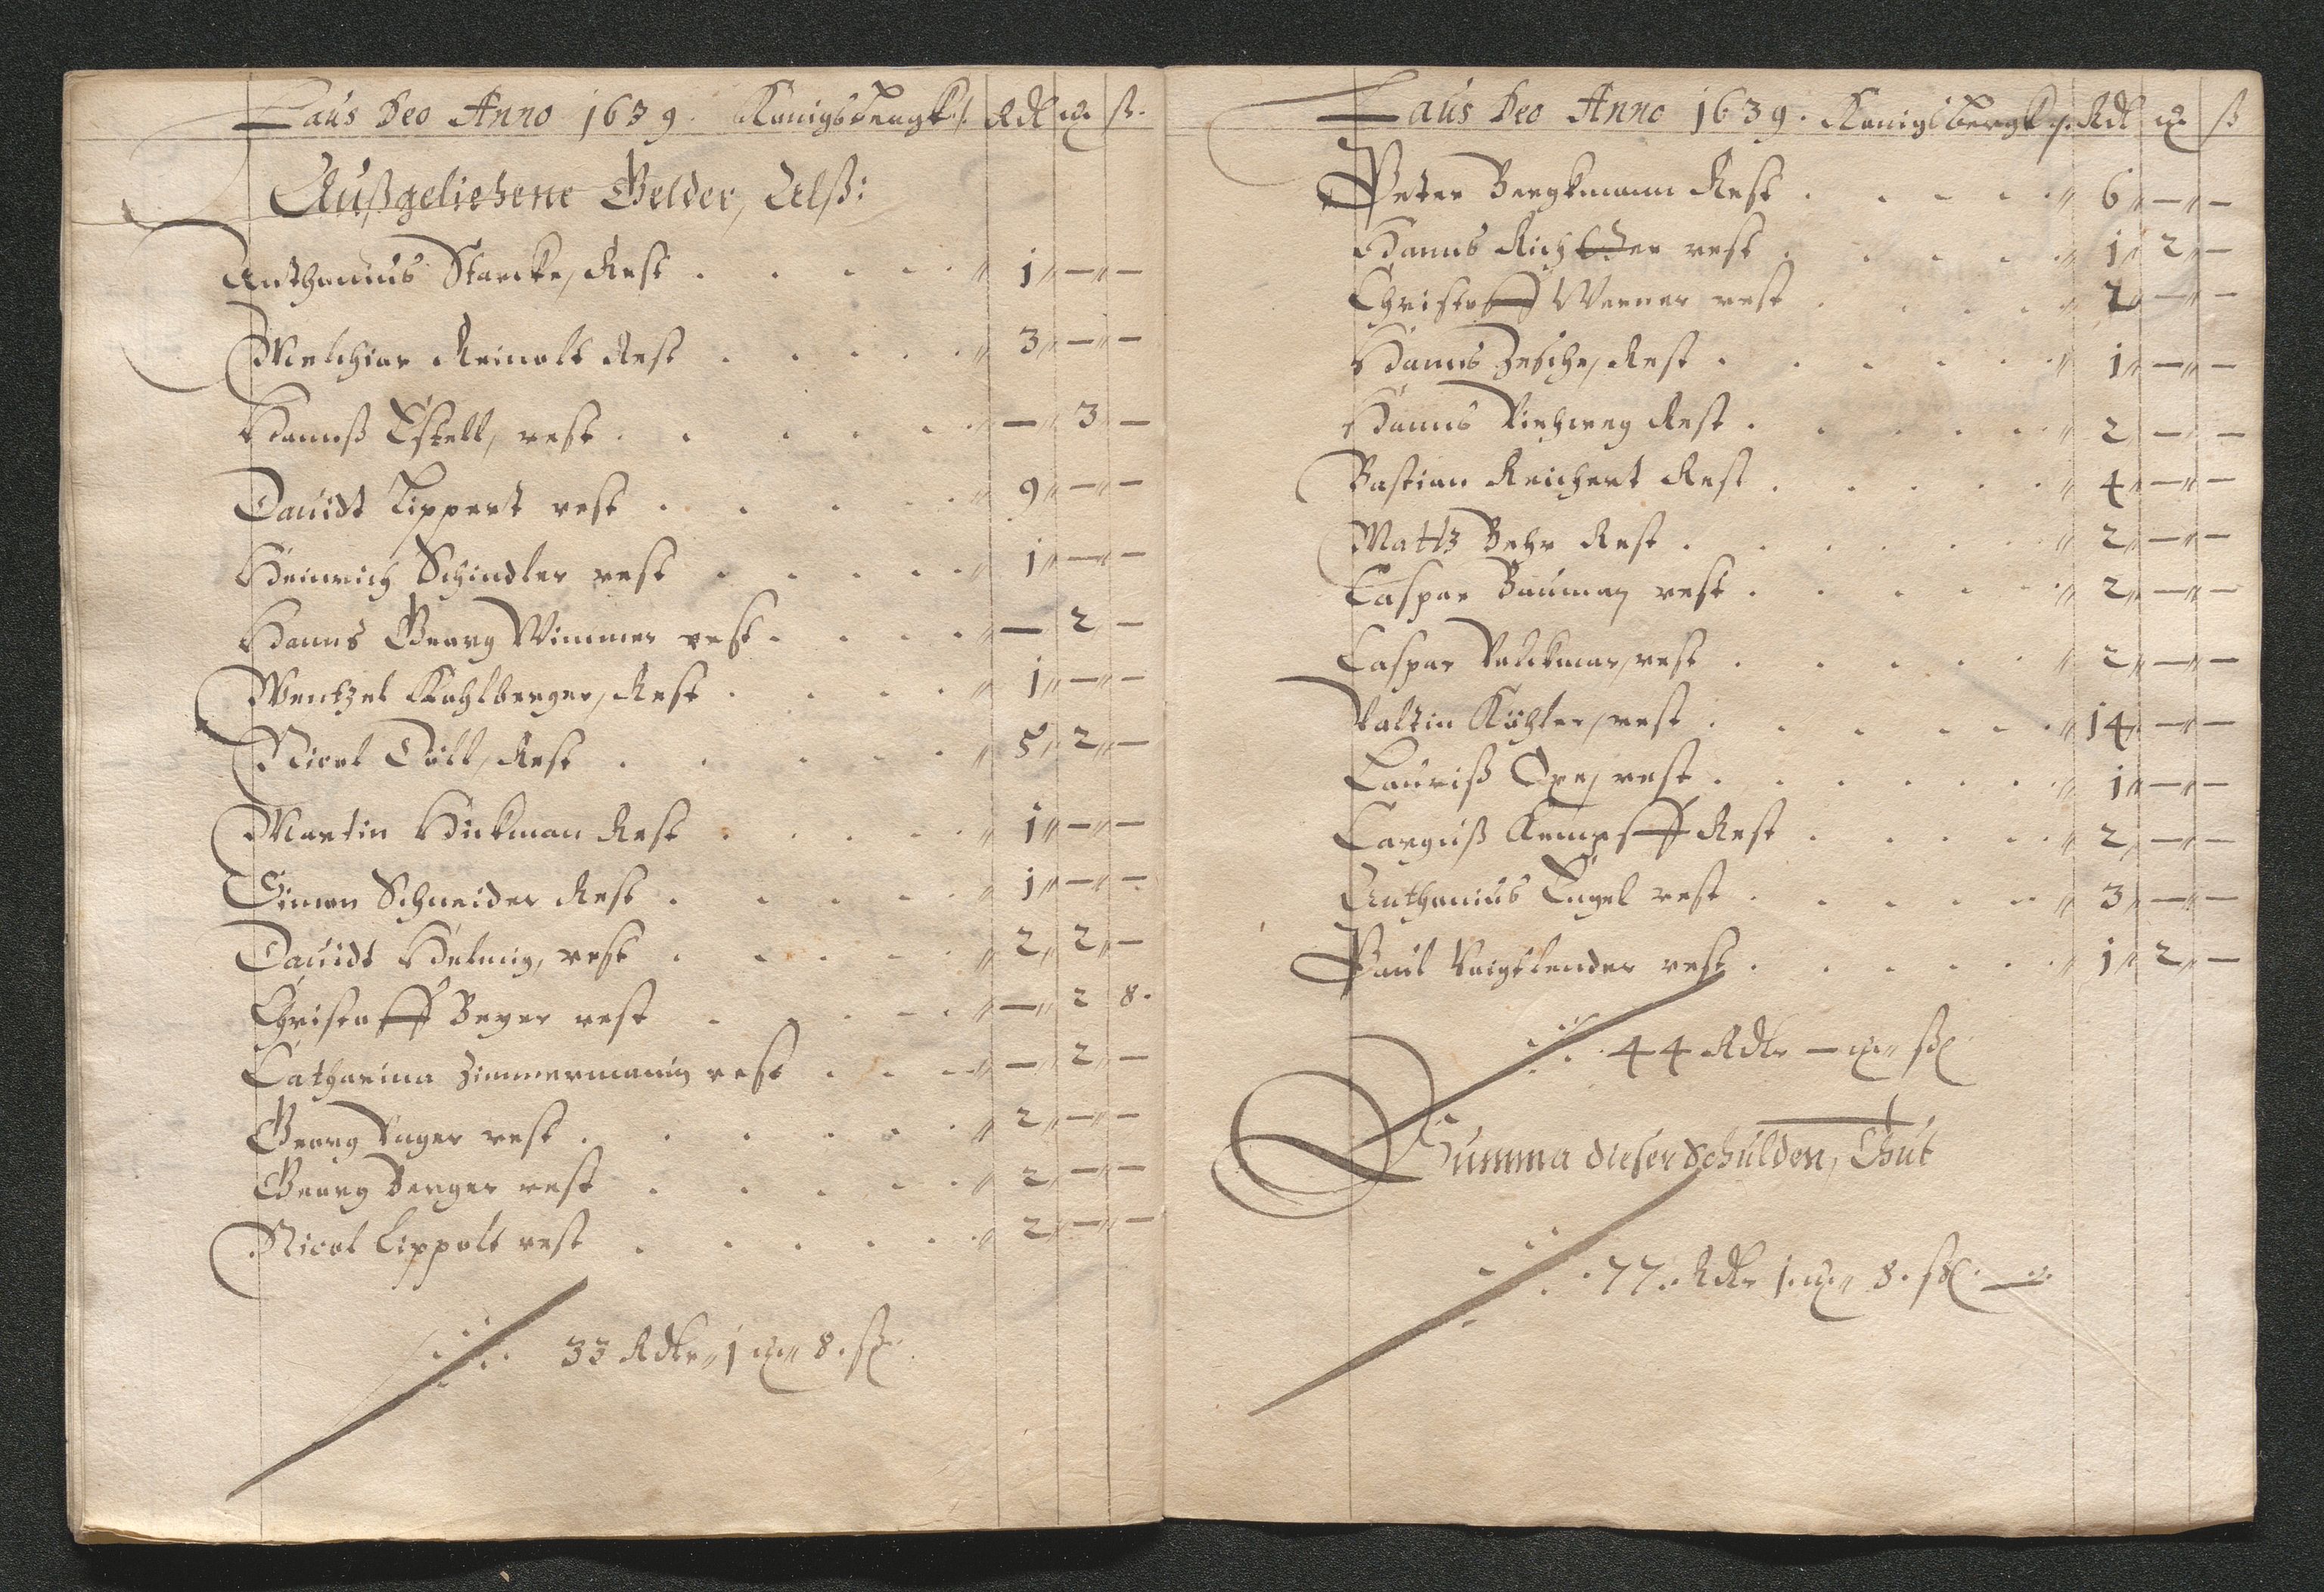 Laus Deo Anno 1639. Königsbergk. Rdl ort ß.
Außgeliehene Gelder, Alß:
Anthonius Starcke, Rest . . . . 1 — —
Melchior Reinolt Rest . . . . 3 — —
Hannß Estell, rest . . . . — 3 —
Dauidt Lippert rest . . . . 9 — —
Heinrich Schindler rest . . . . 1 — —
Hanns Georg Wimmer rest . . . . — 2 —
Wentzel Kohlberger, Rest . . . . 1 — —
Nicol Döll, Rest . . . . 5 2 —
Martin Hickman Rest . . . . 1 — —
Simon Schneider Rest . . . . 1 — —
Dauidt Helmig, rest . . . . 2 2 —
Christoff Beyer rest . . . . — 2 8.
Catharina Zimmermanin rest . . . — 2 —
Georg Unger rest . . . . 2 — —
Georg Berger rest . . . . 2 — —
Nicol Lippolt rest . . . . 2 — —
33 Rdlr 1 ort 8. ß
Laus Deo Anno 1639. Königsbergk. Rdl ort ß
Peter Bergkmann Rest . . . . 6 — —
Hanns Richter rest . . . . 1 2 —
Christoff Werner rest . . . . 2 — —
Hanns Zesche, Rest . . . . 1 — —
Hanns Viehweg Rest . . . . 2 — —
Bastian Reichert Rest . . . . 4 — —
Mattz Behr Rest . . . . 2 — —
Caspar Bauman rest . . . . 2 — —
Caspar Volckmar, rest . . . . 2 — —
Valtin Köhler, rest . . . . 14 — —
Lauriß rest . . . . 1 — —
Kempff Rest . . . . 2 — —
Anthonius Engel rest . . . . 3 — —
Paul Voigtlender rest . . . . 1 2 —
44 Rdlr — ort ß
Summa dieser Schulden, Thut
77. Rdlr 1. ort 8. ß